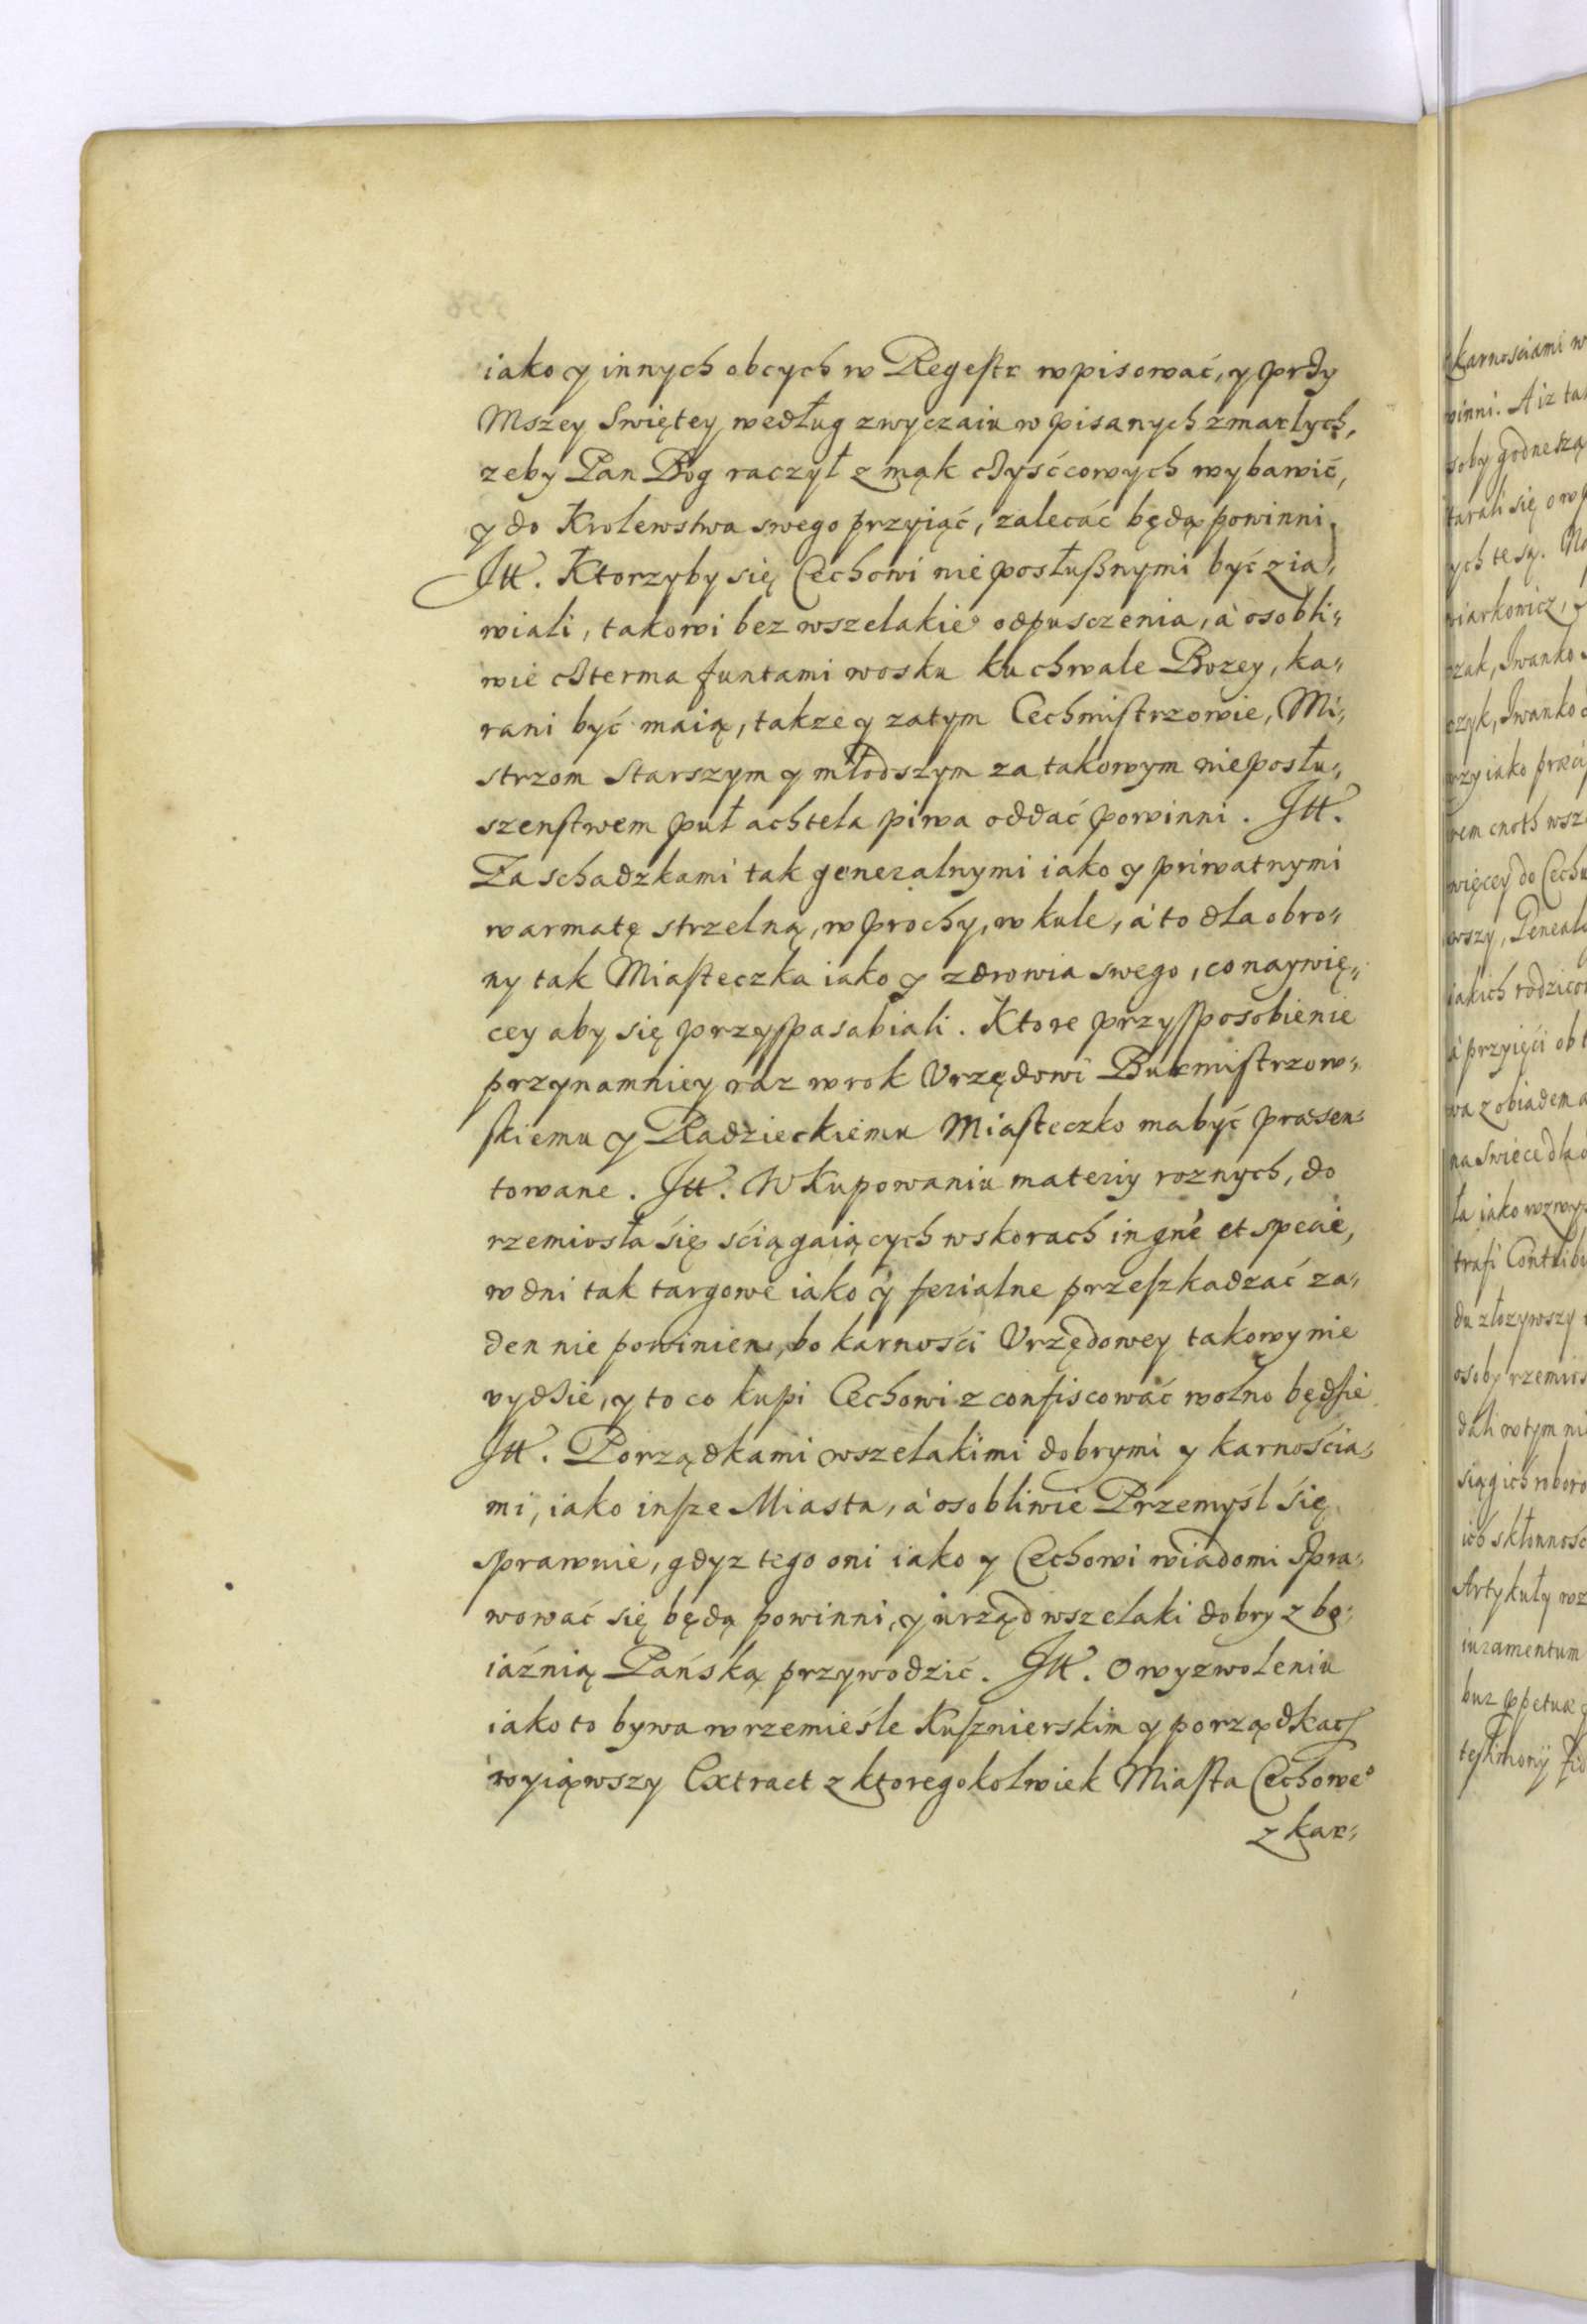 iako y innych obcych w Regestr wpisować, y przy
Mszey Swiętey według zwyczaiu wpisanych zmarłych,
zeby Pan Bog raczył z mąk czyśćcowych wybawić,
y do Krolewstwa swego przyiąć, zalecać będą powinni
Itt. Ktorzyby się Cechowi nieposłusznymi być zia„
wiali, takowi bez wszelakieo odpusczenia, à osobli„
wie czterma funtami wosku ku chwale Bozey, ka„
rani być maią, takze y zatym Cechmistrzowie, Mi„
strzom Starszym y młodszym za takowym nieposłu„
szenstwem puł achtela piwa oddać powinni. Itt.
Za schadzkami tak generalnymi iako y priwatnymi
w armatę strzelną, w prochy, w kule, à to dla obro„
ny tak Miasteczka iako y zdrowia swego, co naywię„
cey aby się przyspasabiali. Ktore przysposobienie
przynamniey raz w rok Vrzędowi Burmistrzow„
skiemu y Radzieckiemu Miasteczko ma być præsen„
towane. Itt. W Kupowaniu materiy roznych, do
rzemiosła się ściągaiących w skorach in gne et specie,
w dni tak targowe iako y ferialne przeszkadzać za„
den nie powinien, bo karności Vrzędowey takowy nie
vydzie, y to co kupi Cechowi zconfiscować wolno będzie
Itt. Porządkami wszelakimi dobrymi y karnościa„
mi, iako insze Miasta, à osobliwie Przemyśl się
sprawuie, gdyz tego oni iako y Cechowi wiadomi spra„
wować się będą powinni, y urząd wszelaki dobry z bo„
iaźnią Pańską przywodzić. Itt. O wyzwoleniu
iako to bywa w rzemieśle Kusznierskim y porządkach
wyiąwszy Extract z ktoregokolwiek Miasta Cechoweo
z kar„
karnościami w
winni. A iz ta
soby godne są
starali się o w
ych te są. 
iarkowicz, y
zak, Iwanko
czyk, Iwanko
rzy iako præci
rem cnoth wsz
więcey do Cechu
wszy, Geneal
iakich rodzicow
à przyięci ob
wa z obiadem a
na świece dla
ła iako wzwy
trafi Contribu
du złozywszy
osoby rzemios
dali w tym ni
siąg ich robor
ich skłonność
Artykuły wz
iuramentum
bur ppetuæ
testimonij fid